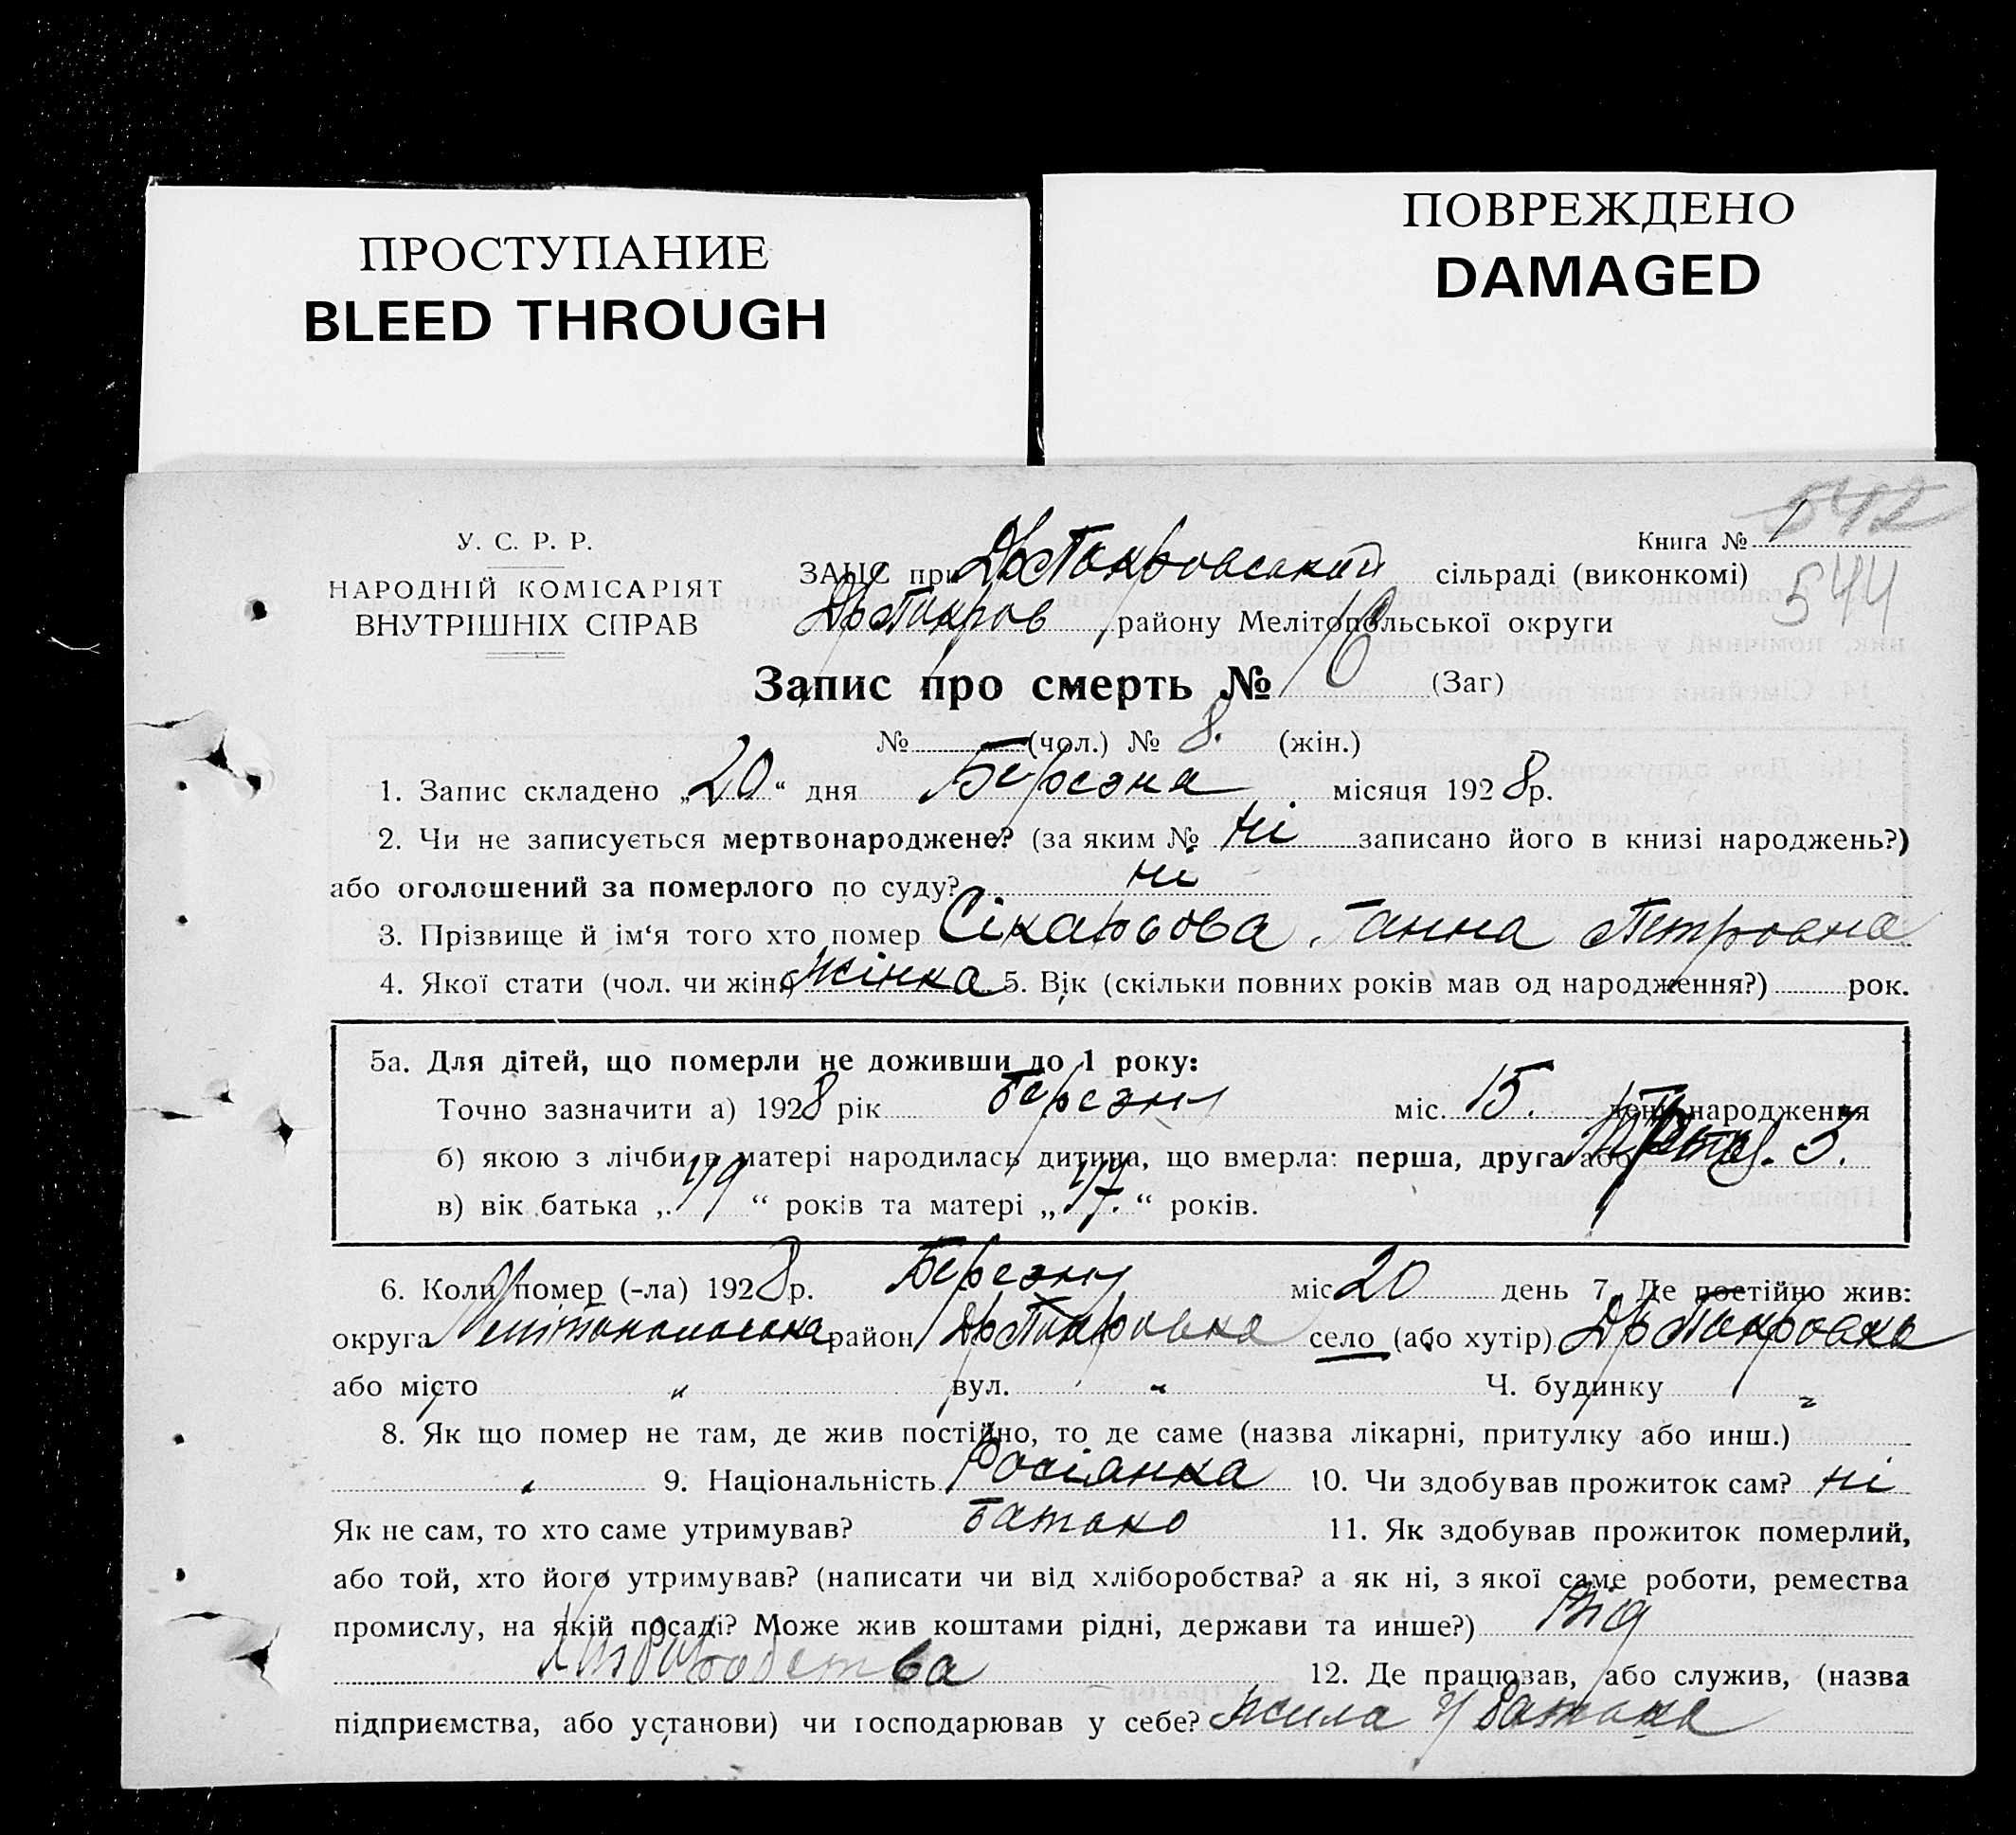 ПРОСТУПАНИЕ
BLEED THROUGH
ПОВРЕЖДЕНО
DAMAGED
542
Книга № 1
544
У. С. Р. Р.
НАРОДНІЙ КОМІСАРІЯТ
ВНУТРІШНІХ СПРАВ
ЗАЦС при Др Покровський сільраді (виконкомі)
Др Покров району Мелітопольської округи
Запис про смерть № 16 (Заг)
№ (чол.) № 8. (жін.)
1. Запис складено „20“ дня Березня місяця 1928р.
2. Чи не записується мертвонароджене? (за яким № Ні записано його в книзі народжень?)
або оголошений за померлого по суду? Ні
3. Прізвище й ім‘я того хто помер Ганна Петровна
4. Якої стати (чол. чи жін.) Жінка 5. Вік (скільки повних років мав од народження?) рок.
5а. Для дітей, що померли не доживши до 1 року:
Точно зазначити а) 1928 рік Березня міс. 15. день народження
б) якою з лічби в матері народилась дитина, що вмерла: перша, друга або 3.
в) вік батька „49“ років та матері „47.“ років.
6. Коли помер (-ла) 1928р. Березня міс 20 день 7. Де постійно жив:
округа Мелітопольська район Др Покровка село (або хутір) Др Покровка
або місто „ вул. „ Ч. будинку „
8. Як що помер не там, де жив постійно, то де саме (назва лікарні, притулку або инш.)
„ 9. Національність Росіянка 10. Чи здобував прожиток сам? Ні
Як не сам, то хто саме утримував? Батько 11. Як здобував прожиток померлий,
або той, хто його утримував? (написати чи від хліборобства? а як ні, з якої саме роботи, ремества
промислу, на якій посаді? Може жив коштами рідні, держави та инше?) Від
Хліборобства 12. Де працював, або служив, (назва
підприємства, або установи) чи господарював у себе? жила у батька